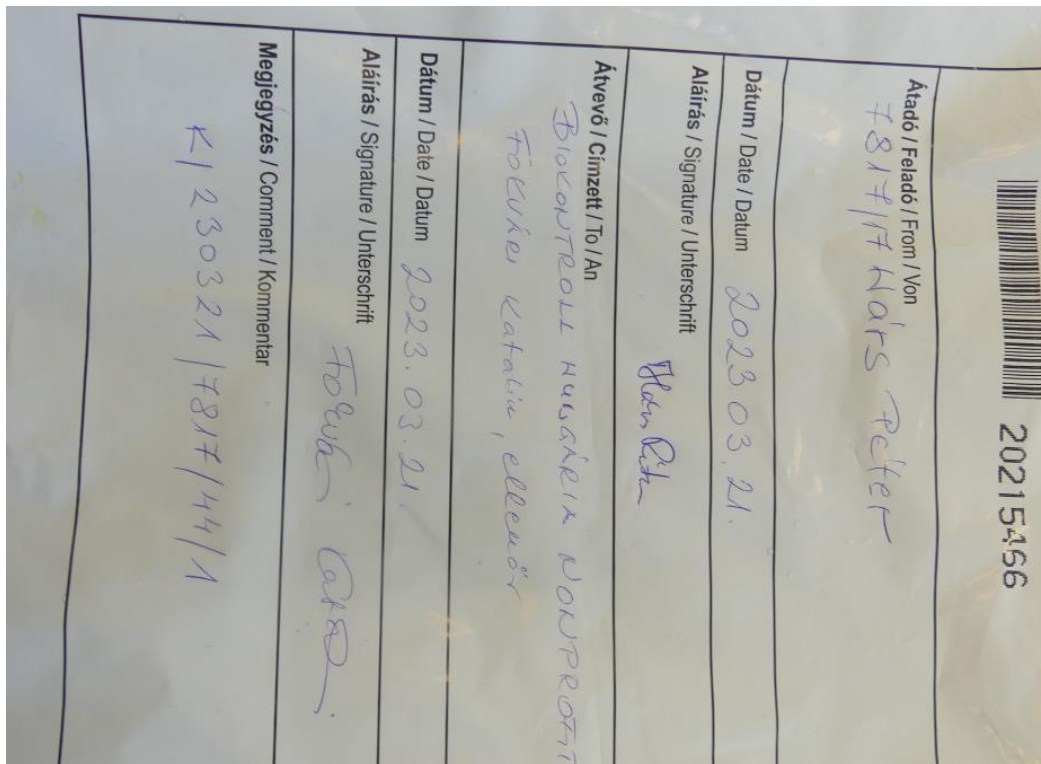 20215466
Átadó / Feladó / From / Von
7817/17 Hárs Péter
Dátum / Date / Datum 2023 03. 21.
Aláírás / Signature / Unterschrift
Átvevő / Címzett / To / An
BIOKONTROLL HUNGÁRIA NONPROFIT
FÖKVÁRI Katalin, ellenőr
Dátum / Date / Datum 2023. 03. 21.
Aláírás / Signature / Unterschrift
Megjegyzés / Comment / Kommentar
K/230321/7817/44/1